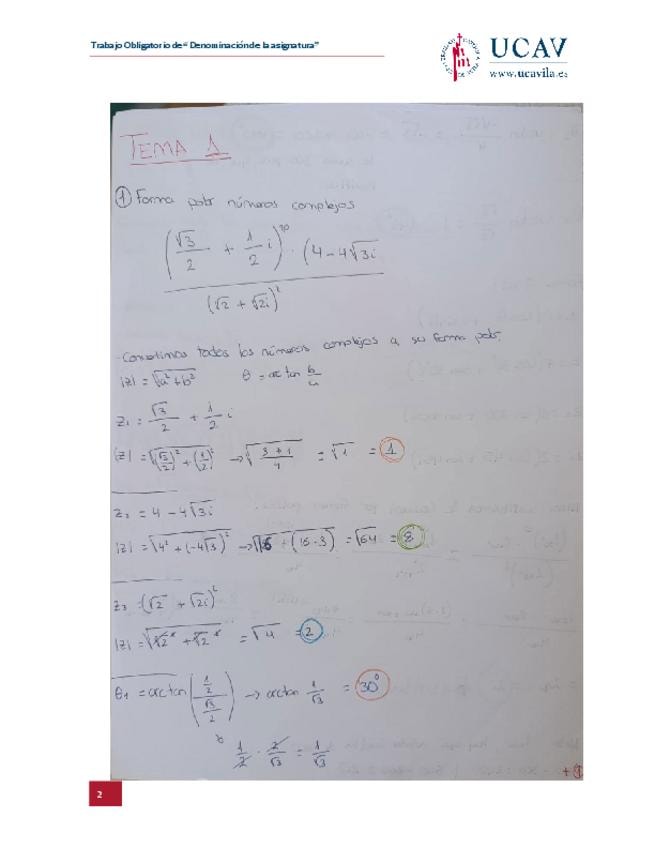 Trabajo Obligatorio de “Denominación de la asignatura”
UCAV
www.ucavila.es
TEMA 1
① Forma polar números complejos
(√3/2 + 1/2 i)^30 · (4 - 4√3i
(√2 + √2i)^2
- Convertimos todos los números complejos a su forma polar.
|z| = √a² + b²   θ = arctan b/a
z₁ = √3/2 + 1/2 i
|z| = √(√3/2)² + (1/2)² → √3+1/4 = √1 = 1
z₂ = 4 - 4√3i
|z| = √4² + (-4√3)² → √16 + (16·3) = √64 = 8
z₃ = (√2 + √2i)²
|z| = √√2² + √2² = √4 = 2
θ₁ = arctan (1/2 / √3/2) → arctan 1/√3 = 30°
1/2 · 2/√3 = 1/√3
2